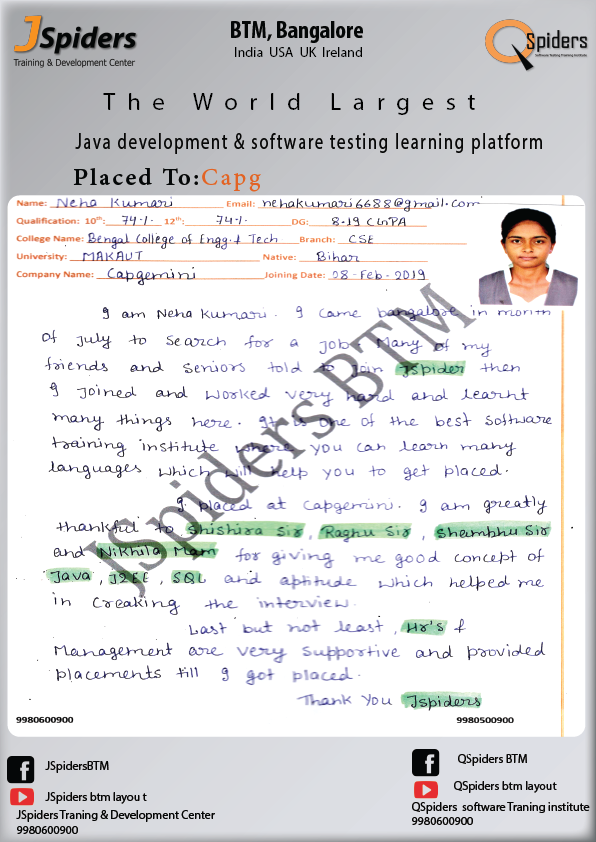 JSpiders
Training & Development Center
BTM, Bangalore
India USA UK Ireland
QSpiders
Software Testing Training Institute
The World Largest
Java development & software testing learning platform
Placed To:Capg
Name: Neha Kumari Email: nehakumari6688@gmail.com
Qualification: 10th: 74%. 12th: 74%. DG: 8.19 CGPA
College Name: Bengal College of Engg. & Tech Branch: CSE
University: MAKAUT Native: Bihar
Company Name: Capgemini Joining Date: 28-Feb-2019
I am Neha Kumari. I came bangalore in month
of July to search for a job. Many of my
friends and seniors told to join Jspider then
I joined and worked very hard and learnt
many things here. It is one of the best software
training institute where you can learn many
languages which will help you to get placed.
I placed at capgemini. I am greatly
thankful to Shishira Sir, Raghu Sir, Shambhu Sir
and Nikhila Mam for giving me good concept of
Java, J2EE, SQL and aptitude which helped me
in creaking the interview.
Last but not least, Hr's &
Management are very supportive and provided
placements till I got placed.
Thank You Jspiders
JSpiders BTM
9980600900 9980500900
JSpidersBTM
JSpiders btm layou t
JSpiders Traning & Development Center
9980600900
QSpiders BTM
QSpiders btm layout
QSpiders software Traning institute
9980600900